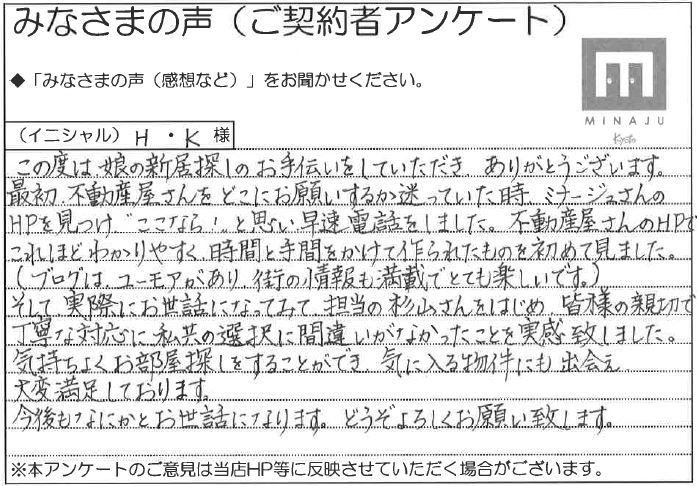 みなさまの声（ご契約者アンケート）
◆「みなさまの声（感想など）」をお聞かせください。
MINAJU
Kyoto
（イニシャル） H ・ K 様
この度は、娘の新居探しのお手伝いをしていただき、ありがとうございます。
最初、不動産屋さんをどこにお願いするか迷っていた時、ミナージュさんの
HPを見つけ、"ここなら！"と思い早速電話をしました。不動産屋さんのHPで
これほどわかりやすく、時間と手間をかけて作られたものを初めて見ました。
（ブログは、ユーモアがあり、街の情報も満載でとても楽しいです。）
そして、実際にお世話になってみて、担当の杉山さんをはじめ、皆様の親切で
丁寧な対応に、私共の選択に間違いがなかったことを実感致しました。
気持ちよくお部屋探しをすることができ、気に入る物件にも出会え
大変満足しております。
今後もなにかとお世話になります。どうぞよろしくお願い致します。
※本アンケートのご意見は当店HP等に反映させていただく場合がございます。